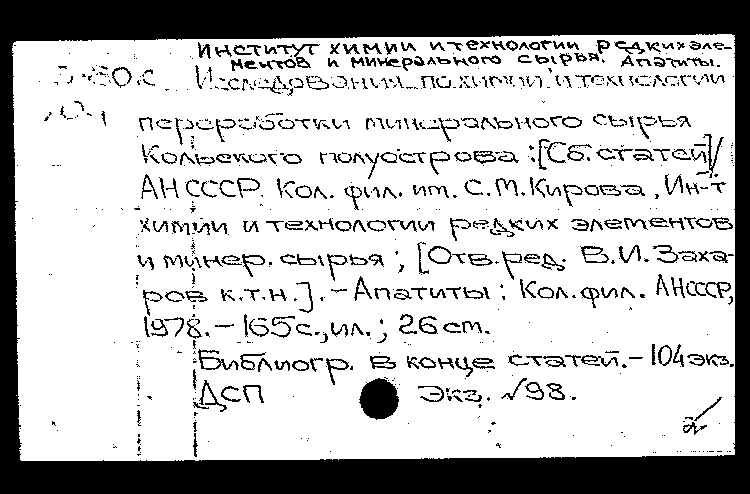 Институт химии и технологии редких эле-
ментов и минерального сырья. Апатиты.
Исследования по химии и технологии
переработки минерального сырья
Кольского полуострова : [Сб. статей]/
АН СССР. Кол. фил. им. С.М.Кирова, Ин-т
химии и технологии редких элементов
и минер. сырья ; [Отв. ред. В.И. Заха-
ров к.т.н.]. – Апатиты : Кол. фил. АНСССР,
1978. – 165 с., ил. ; 26 cm.
Библиогр. в конце статей. – 104 экз.
ДСП Экз. √98.